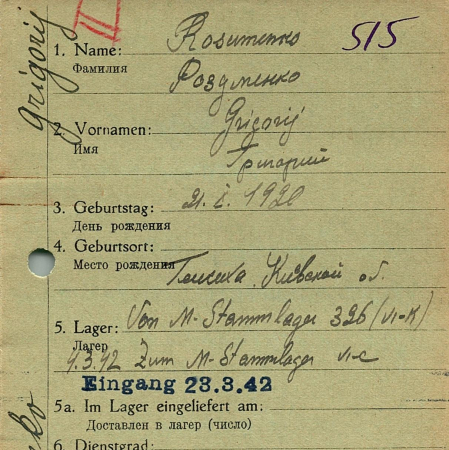 Grigorij
II
1. Name: Rosumenko 515
Фамилия Розуменко
2. Vornamen: Grigorij
Имя Григорий
3. Geburtstag: 21. I. 1920
День рождения
4. Geburtsort:
Место рождения Киевской об.
5. Lager: Von M-Stammlager 326 (VI-K)
Лагер 9.3.42 Zum M-Stammlager VI-C
Eingang 23.3.42
5a. Im Lager eingeliefert am:
Доставлен в лагер (число)
6. Dienstgrad: